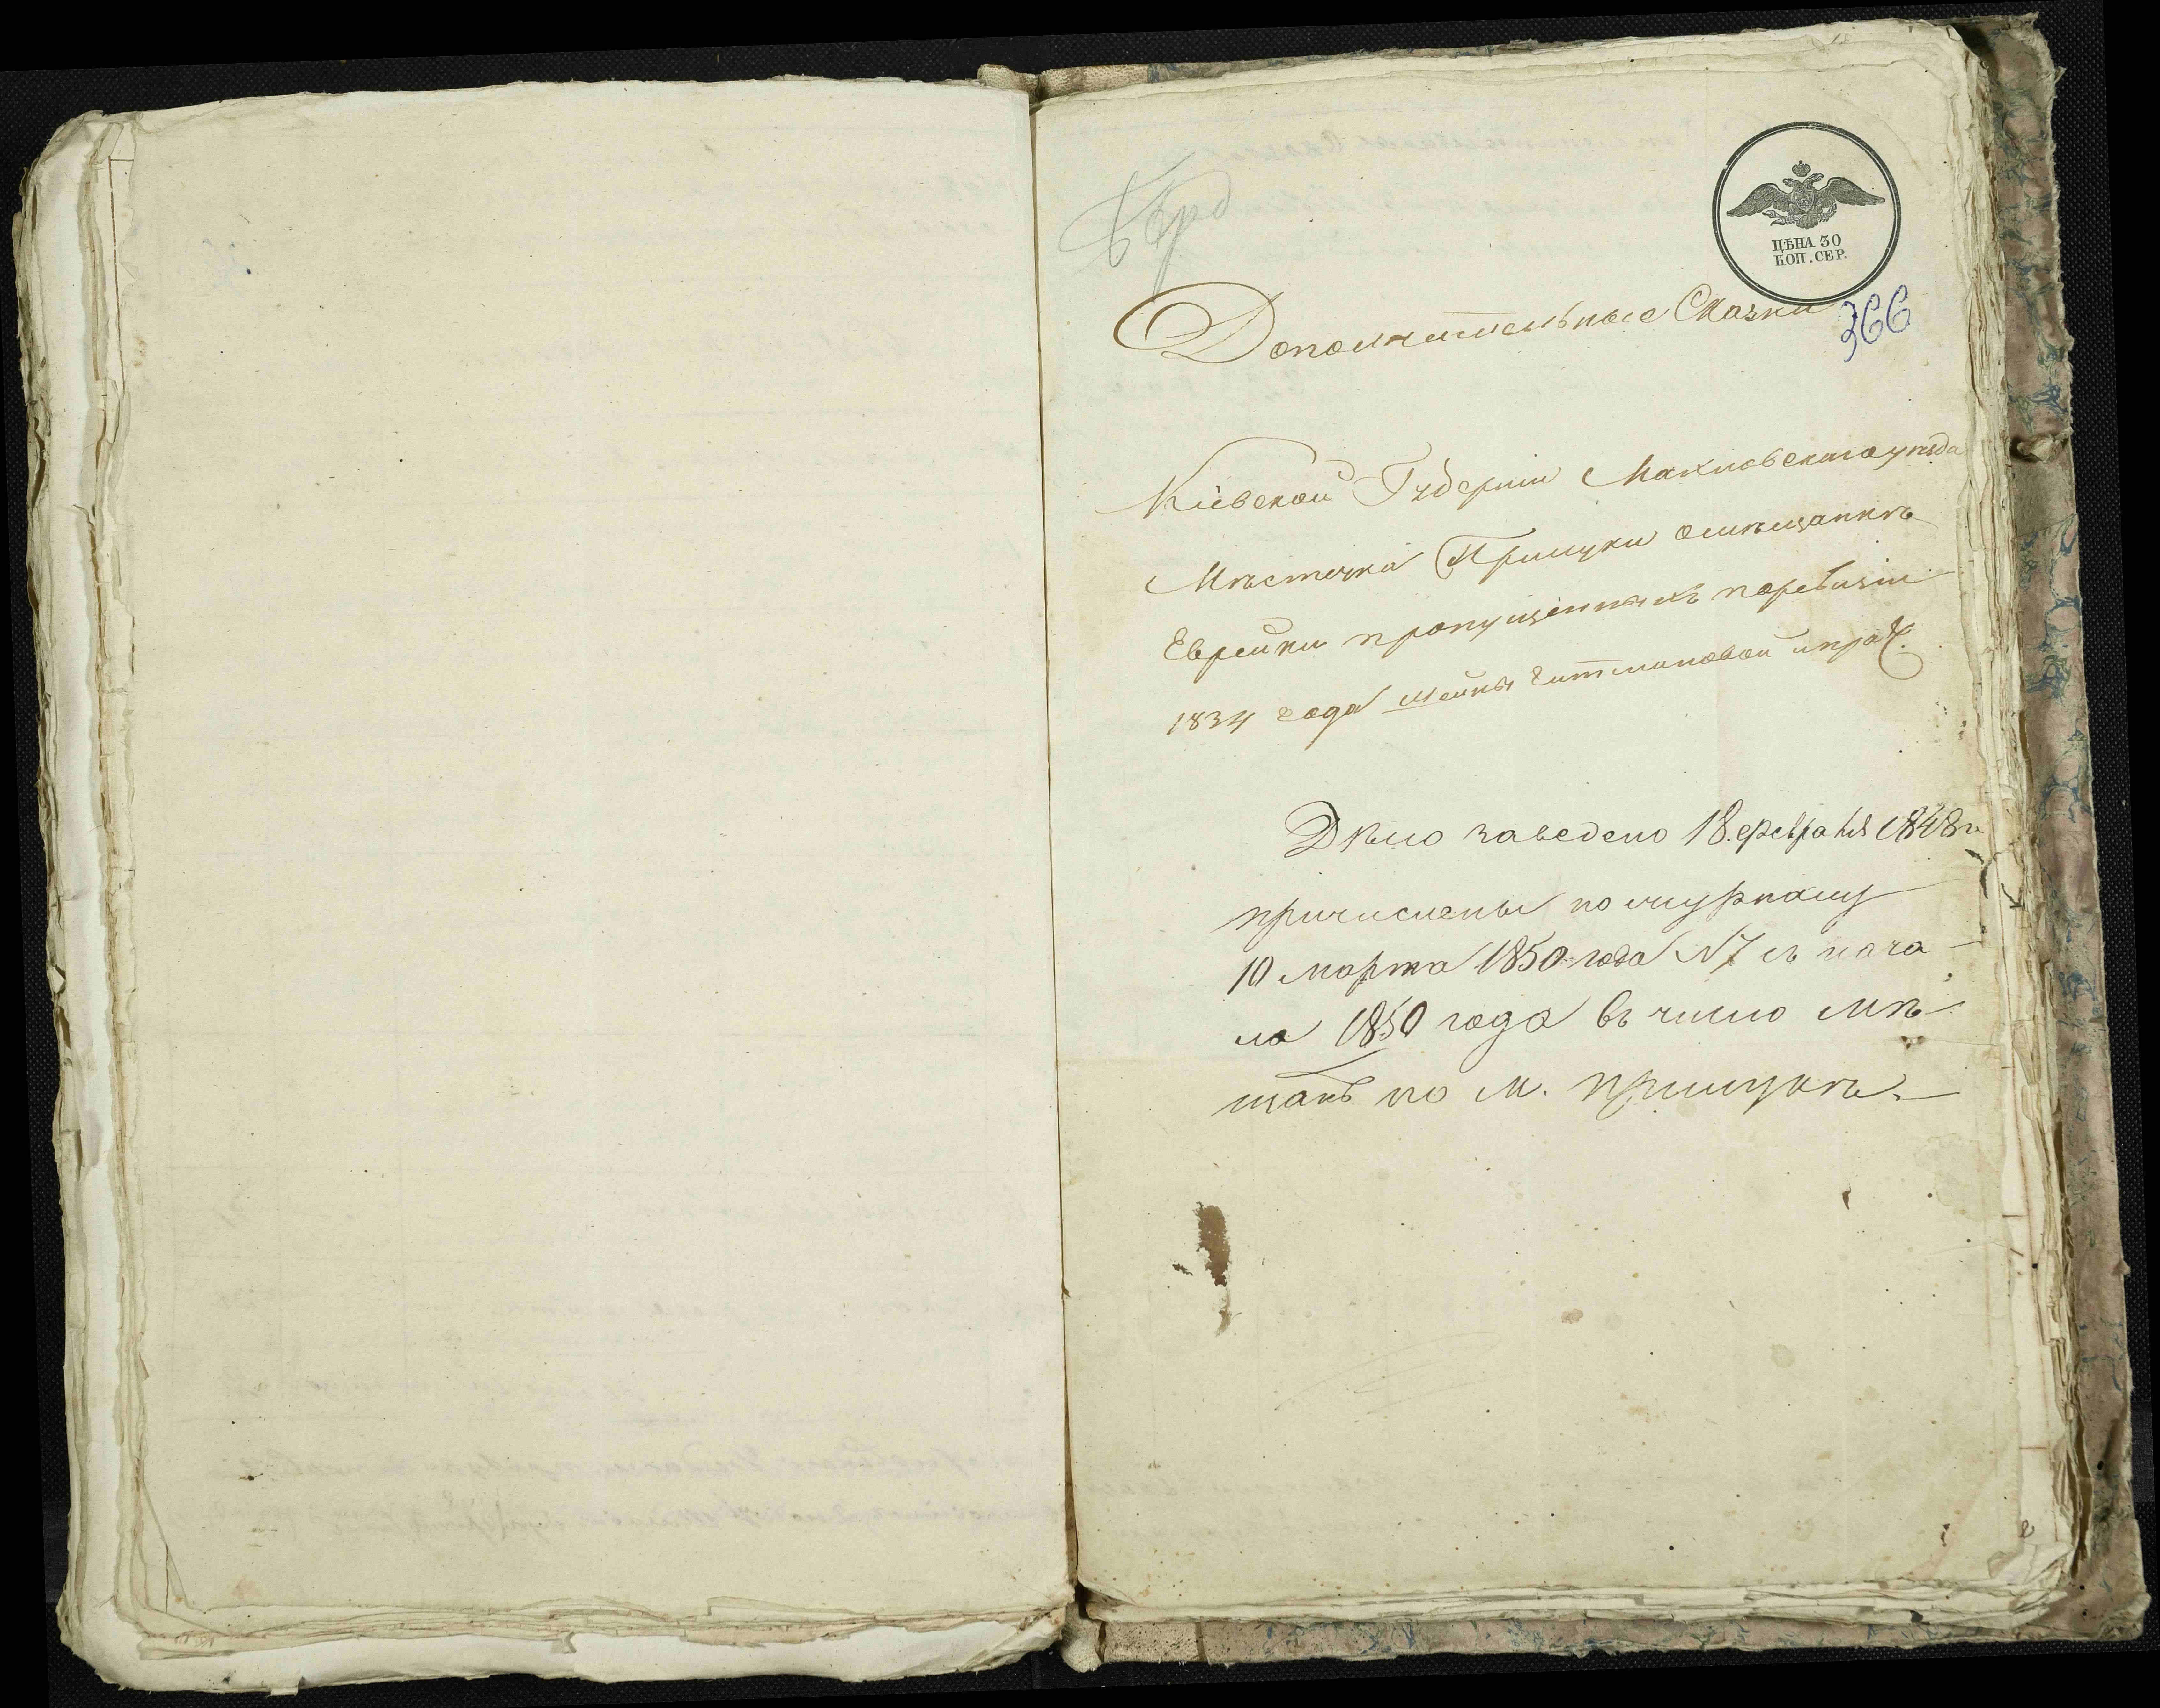 Берд
ЦѢНА 30
КОП. СЕР.
366
Дополнительные Сказки
Кіевской Губерніи Махновскаго уѣзда
Мѣстечка Прилуки о мѣщанкѣ
Еврейки пропущенныхъ по ревизіи
1834 года Шейны Гитмановой и проч.
Дѣло заведено 18 февраля 1848 г.
причислены по журналу
10 марта 1850 года N 7 съ нача
ла 1850 года въ число мѣ
щанъ по м. Прилукѣ.